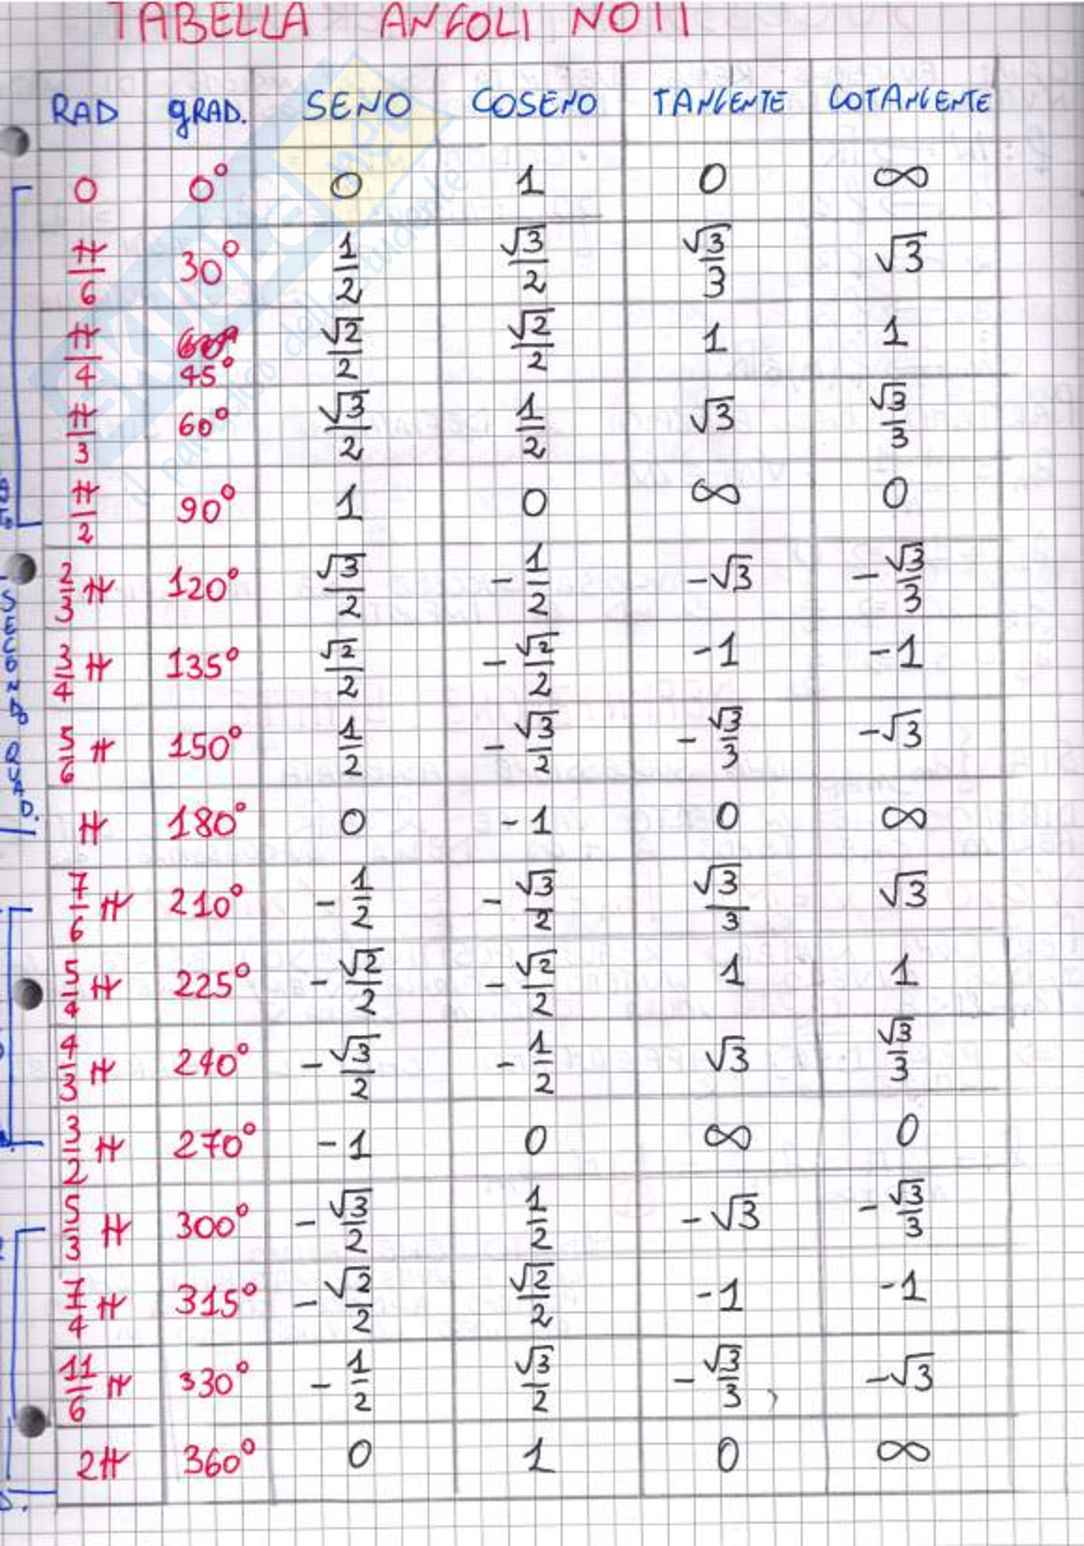 TABELLA ANGOLI NOTI
RAD gRAD. SENO COSENO TANGENTE COTANGENTE
0 0° 0 1 0 ∞
π/6 30° 1/2 √3/2 √3/3 √3
π/4 45° √2/2 √2/2 1 1
π/3 60° √3/2 1/2 √3 √3/3
π/2 90° 1 0 ∞ 0
2/3 π 120° √3/2 -1/2 -√3 -√3/3
3/4 π 135° √2/2 -√2/2 -1 -1
5/6 π 150° 1/2 -√3/2 -√3/3 -√3
π 180° 0 -1 0 ∞
7/6 π 210° -1/2 -√3/2 √3/3 √3
5/4 π 225° -√2/2 -√2/2 1 1
4/3 π 240° -√3/2 -1/2 √3 √3/3
3/2 π 270° -1 0 ∞ 0
5/3 π 300° -√3/2 1/2 -√3 -√3/3
7/4 π 315° -√2/2 √2/2 -1 -1
11/6 π 330° -1/2 √3/2 -√3/3 -√3
2π 360° 0 1 0 ∞
SECONDO QUAD.